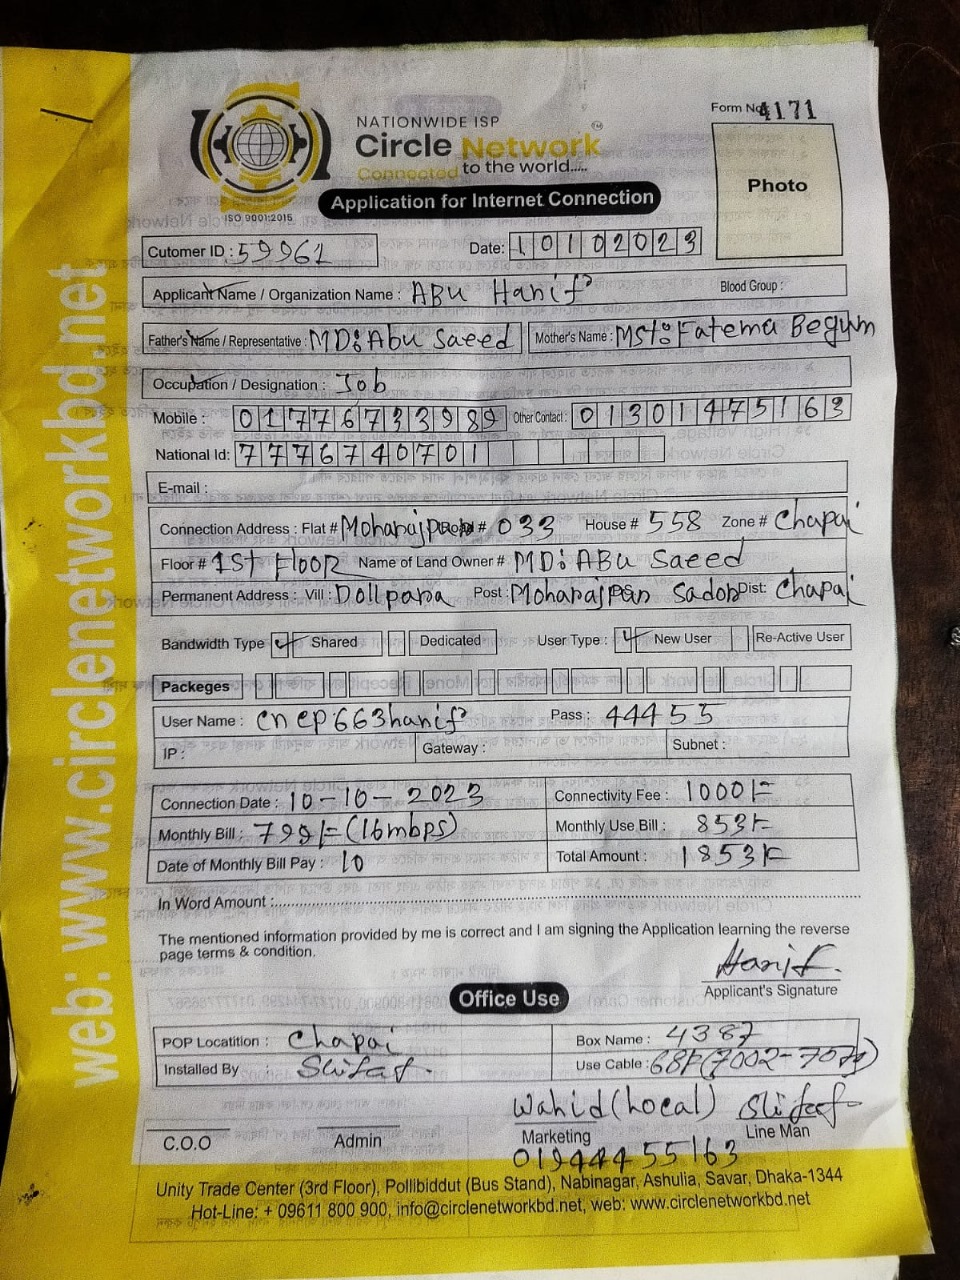 Form No 4171
NATIONWIDE ISP
Circle Network TM
Connected to the world.....
ISO 9001:2015
Application for Internet Connection
Photo
Cutomer ID : 59961
Date: 10102023
Applicant Name / Organization Name : ABU Hanif Blood Group :
Father's Name / Representative : MD: Abu Saeed Mother's Name : MSt: Fatema Begum
Occupation / Designation : Job
Mobile : 01776733989 Other Contact : 01301475163
National Id: 7776740701
E-mail :
Connection Address : Flat # Moharajpur # 033 House # 558 Zone # Chapai
Floor # 1St Floor Name of Land Owner # MD: ABU Saeed
Permanent Address : Vill : Dollpara Post : Moharajpur Sador Dist: Chapai
Bandwidth Type Shared Dedicated User Type : New User Re-Active User
Packeges
User Name : cnep663hanif Pass : 44455
IP : Gateway : Subnet :
Connection Date : 10-10-2023 Connectivity Fee : 1000/=
Monthly Bill : 799/= (16mbps) Monthly Use Bill : 853/=
Date of Monthly Bill Pay : 10 Total Amount : 1853/=
In Word Amount :
The mentioned information provided by me is correct and I am signing the Application learning the reverse
page terms & condition.
Hanif
Applicant's Signature
Office Use
POP Locatition : Chapai Box Name : 4387
Installed By Use Cable :
Wahid (Local)
C.O.O Admin Marketing Line Man
Unity Trade Center (3rd Floor), Pollibiddut (Bus Stand), Nabinagar, Ashulia, Savar, Dhaka-1344
Hot-Line: + 09611 800 900, info@circlenetworkbd.net, web: www.circlenetworkbd.net
web: www.circlenetworkbd.net